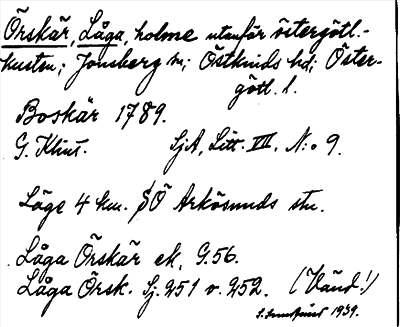 Örskär, Låga, holme utanför östergötl.-
kusten; Jonsberg sn; Östkinds hd; Öster-
götl. l.
Boskär 1789.
G. Klint. SjA, Litt. VII, N:o 9.
Läge 4 km. SÖ Arkösunds stn.
Låga Örskär ek, G.56.
Låga Örsk. Sj. 251 v. 252. (Vänd!)
1939.